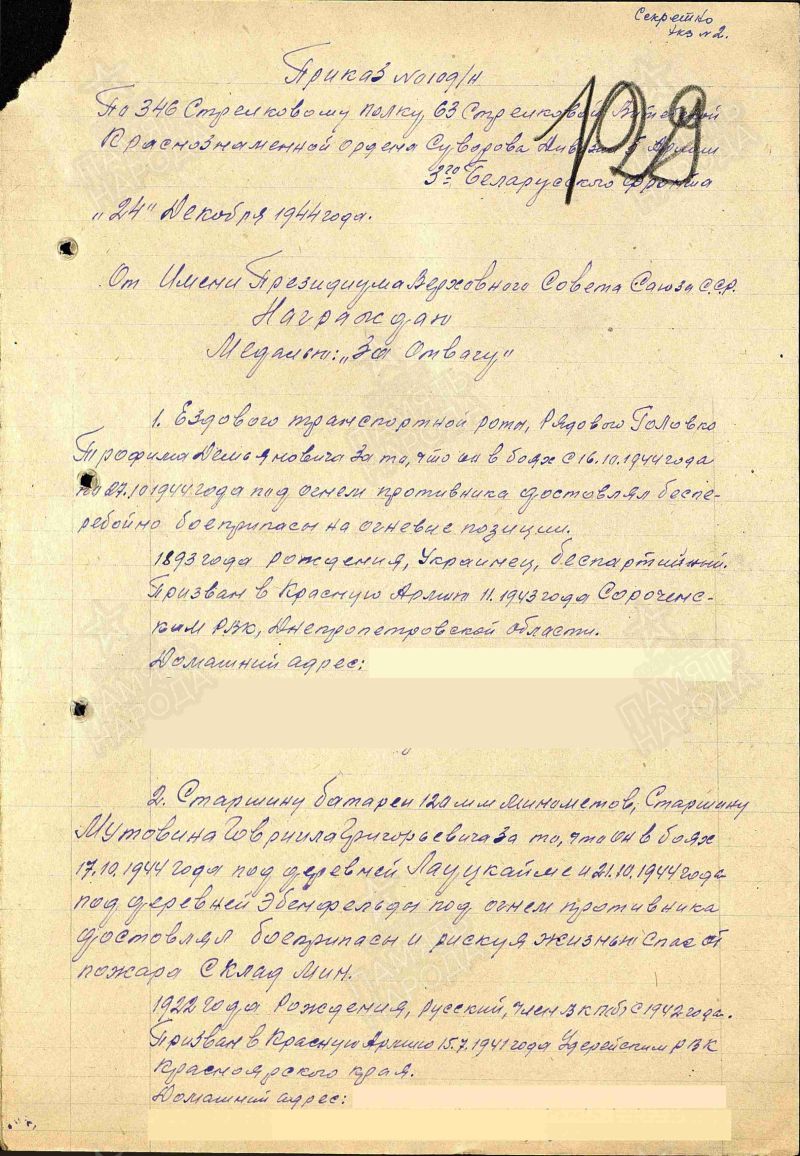 Секретно
экз №2.
Приказ №0109/н
По 346 Стрелковому полку 63 Стрелковой Витебской
Краснознаменной ордена Суворова Дивизии 5 Армии
3го Беларусского фронта
129
"24" Декабря 1944 года.
От Имени Президиума Верховного Совета Союза С.С.Р.
Награждаю
Медалью: "За Отвагу"
1. Ездового транспортной роты, Рядового Головко
Трофима Демьяновича За то, что он в боях с 16.10.1944 года
по 27.10 1944 года под огнем противника доставлял беспе-
ребойно боеприпасы на огневые позиции.
1893 года рождения, Украинец, беспартийный.
Призван в Красную Армию 11.1943 года Сороченс-
ким РВК, Днепропетровской области.
Домашний адрес:
2. Старшину батареи 120 мм минометов, Старшину
Мутовина Говриила Григорьевича За то, что он в боях
17.10.1944 года под деревней Лауцкайме и 21.10.1944 года
под деревней Эбенфельды под огнем противника
доставлял боеприпасы и рискуя жизнью Спас от
пожара Склад Мин.
1922 года Рождения, Русский, член ВКП(б) с 1942 года.
Призван в Красную Армию 15.7.1941 года Удерейским РВК
Красноярского края.
Домашний адрес:
ПАМЯТЬ
НАРОДА